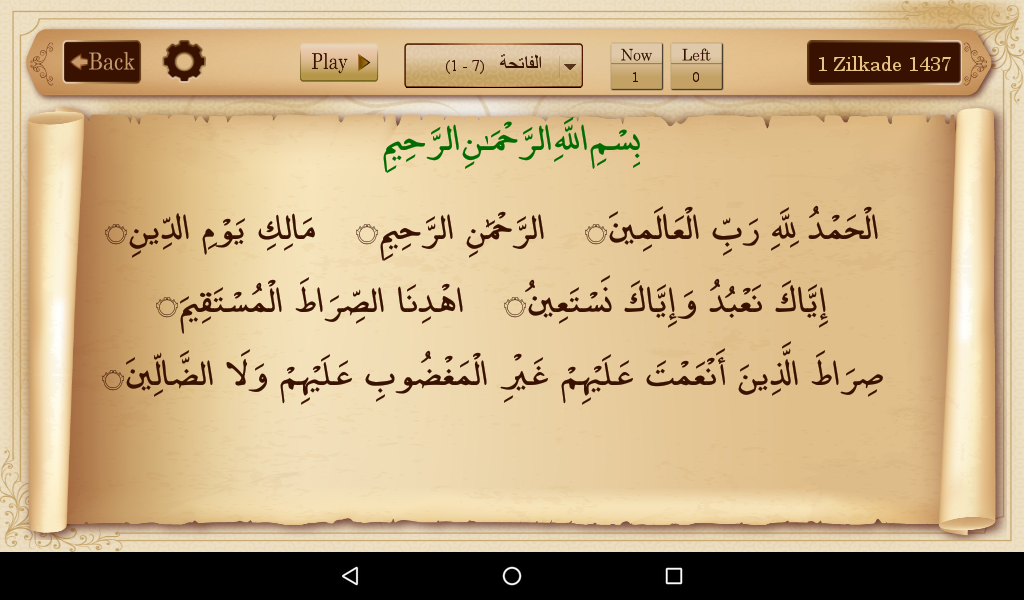 Back
Play
الفاتحة (1 - 7)
Now
1
Left
0
1 Zilkade 1437
بِسْمِ اللَّهِ الرَّحْمَـٰنِ الرَّحِيمِ
الْحَمْدُ لِلَّهِ رَبِّ الْعَالَمِينَ الرَّحْمَٰنِ الرَّحِيمِ مَالِكِ يَوْمِ الدِّينِ
إِيَّاكَ نَعْبُدُ وَإِيَّاكَ نَسْتَعِينُ اهْدِنَا الصِّرَاطَ الْمُسْتَقِيمَ
صِرَاطَ الَّذِينَ أَنْعَمْتَ عَلَيْهِمْ غَيْرِ الْمَغْضُوبِ عَلَيْهِمْ وَلَا الضَّالِّينَ